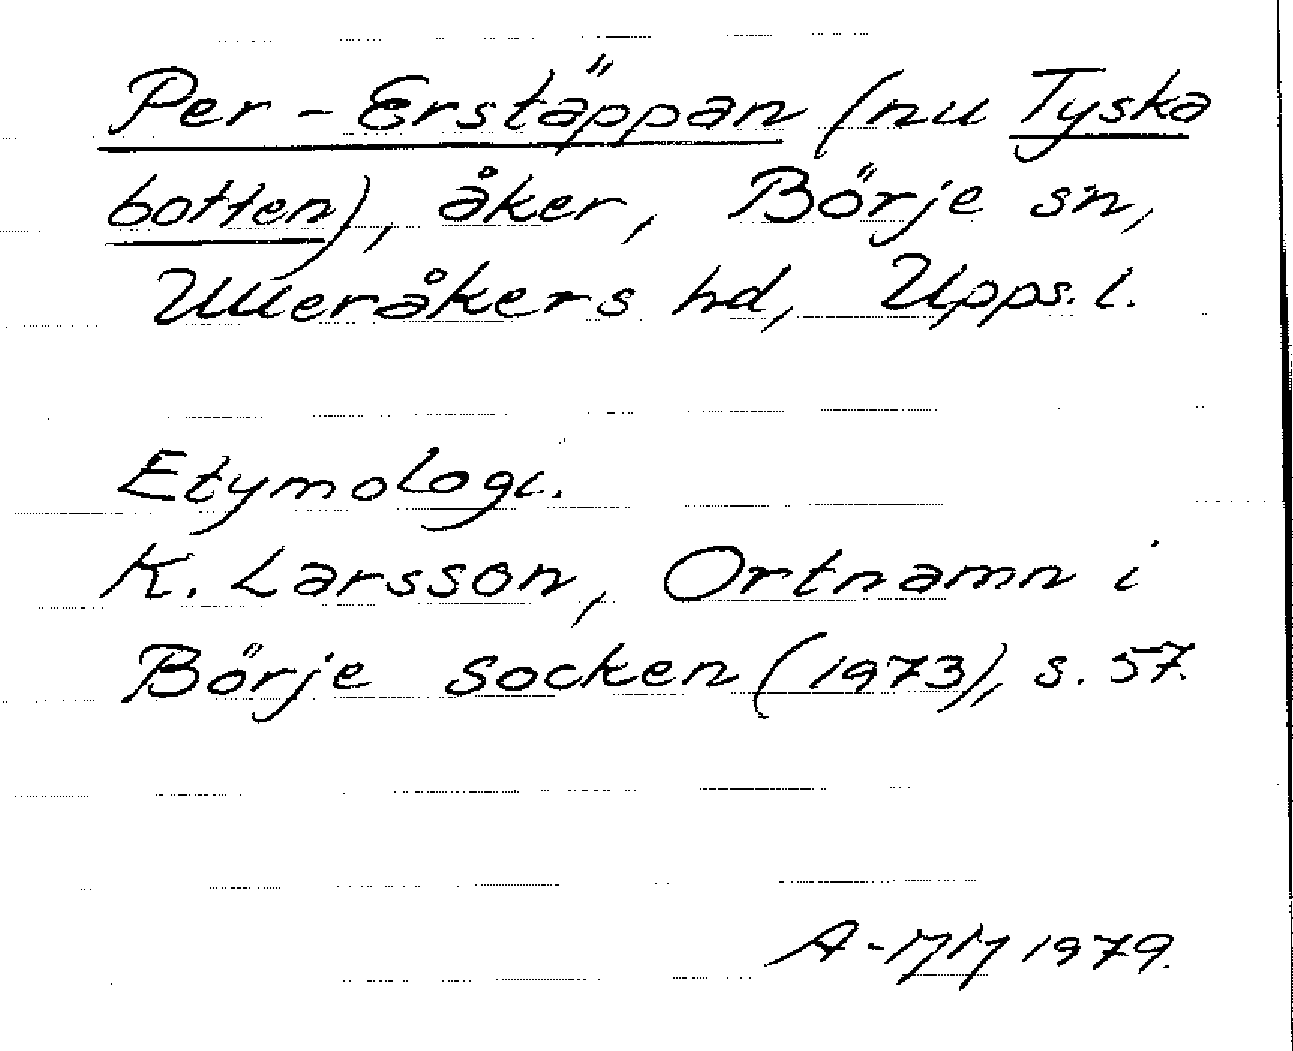 Per-Erstäppan (nu Tyska
botten), åker, Börje sn,
Ulleråkers hd, Upps. l.
Etymologi.
K. Larsson, Ortnamn i
Börje socken (1973), s. 57.
1979.